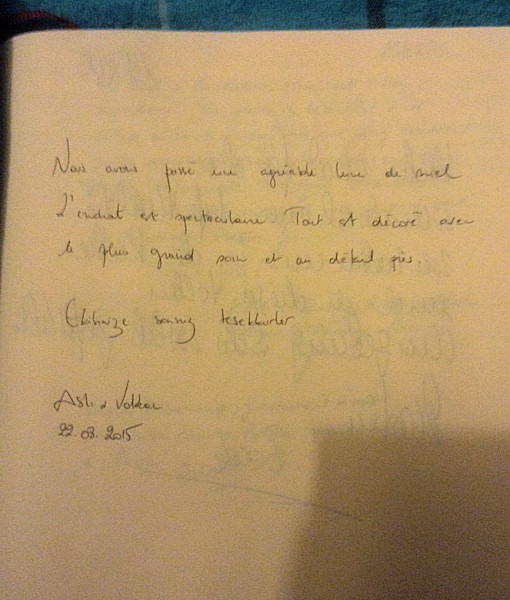 Nous avons passé une agréable lune de miel
L'endroit est spectaculaire Tout est décoré avec
le plus grand soin et au détail près.
Ekibinize sonsuz tesekkurler
Aslı & Volkan
22.08.2015